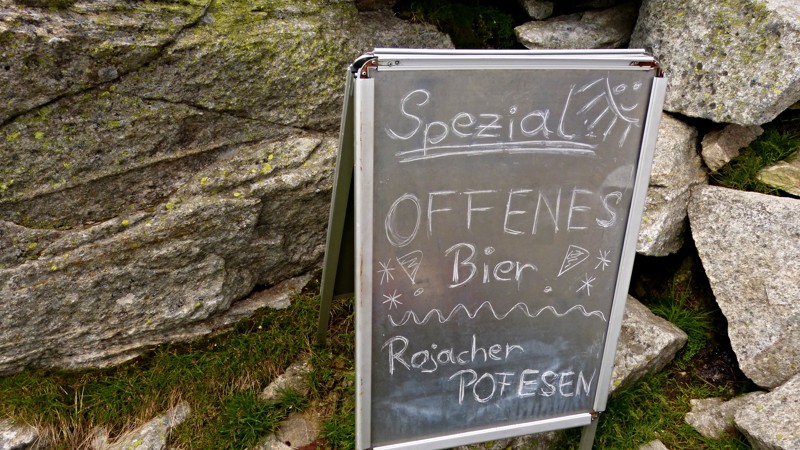 Spezial
OFFENES
Bier
Rojacher
POFESEN